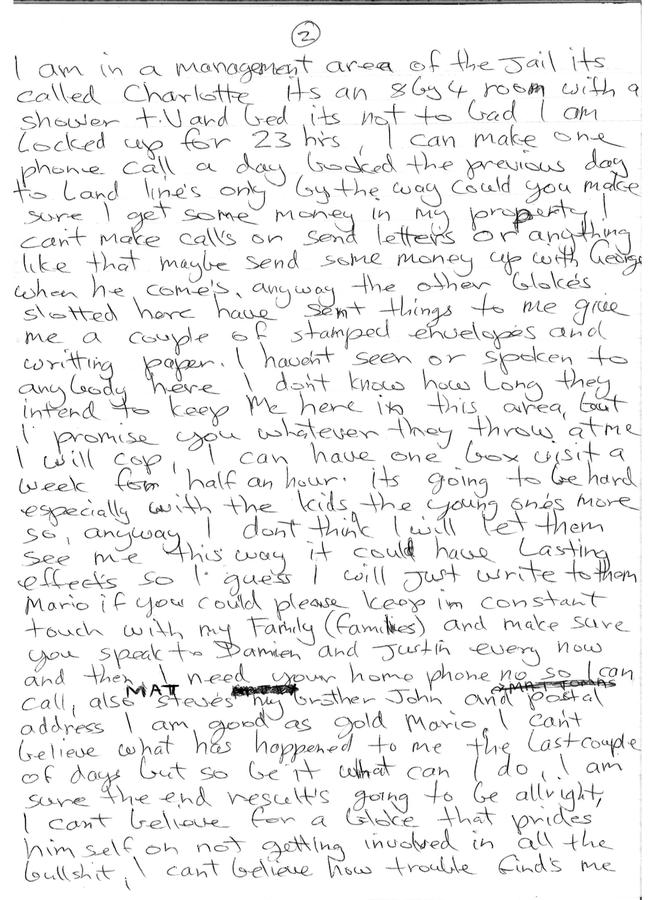 2
I am in a management area of the Jail its
called Charlotte Its an 8 by 4 room with a
shower t.V and bed its not to bad I am
Locked up for 23 hrs, I can make one
phone call a day booked the previous day
to Land line's only by the way Could you make
sure I get some money in my property I
can't make call's or send letters or anything
like that maybe send some money up with George
when he come's. anyway the other bloke's
slotted here have sent things to me give
me a couple of stamped envelopes and
writting paper. I havent seen or spoken to
anybody here I don't know how Long they
intend to keep Me here in this area, but
I promise you whatever they throw at me
I will cop, I can have one box visit a
week for half an hour. its going to be hard
especially with the kids the young one's more
so, anyway I dont think I will let them
see me this way it could have Lasting
effects so I guess I will just write to them
Mario if you could please keep im constant
touch with my Family (families) and make sure
you speak to Damien and Justin every now
and then, I need your home phone no so I can
call, also MAT steve's my brother John and postal
address I am good as gold Mario, I can't
believe what has happened to me the Last couple
of days but so be it what can I do, I am
sure the end result's going to be allright,
I cant believe for a bloke that prides
him self on not getting involved in all the
bullshit, I cant believe how trouble find's me